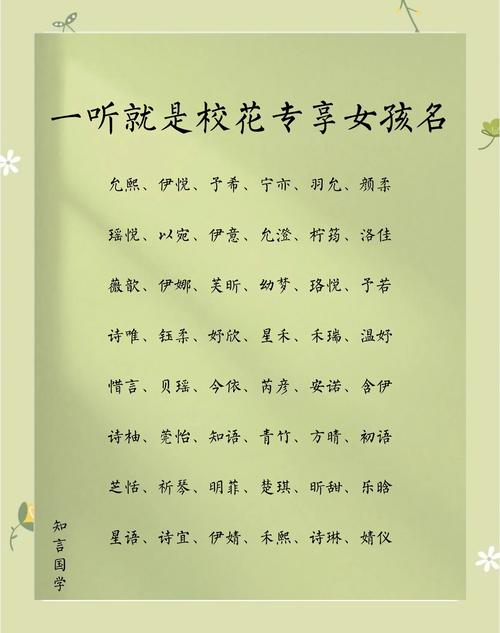 一听就是校花专享女孩名
允熙、伊悦、予希、宁亦、羽允、颜柔
瑶悦、以宛、伊意、允澄、柠筠、洛佳
薇歆、伊娜、芙昕、幼梦、珞悦、予若
诗唯、钰柔、妤欣、星禾、禾瑞、温妤
惜言、贝瑶、今依、芮彦、安诺、含伊
诗柚、莞怡、知语、青竹、方晴、初语
芝恬、祈琴、明菲、楚琪、昕甜、乐晗
星语、诗宜、伊婧、禾熙、诗琳、婧仪
知言国学